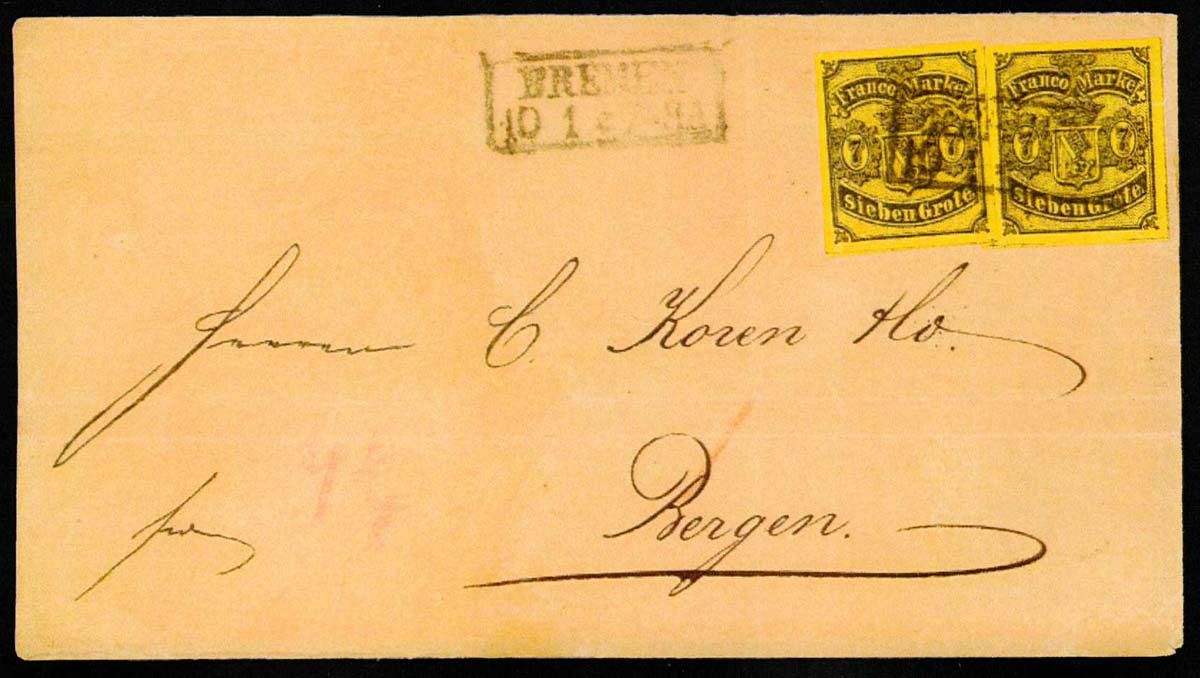 BREMEN
10 1
Franco Marke
7 7
Sieben Grote.
Franco Marke
7 7
Sieben Grote.
Herren C. Koren
Bergen.